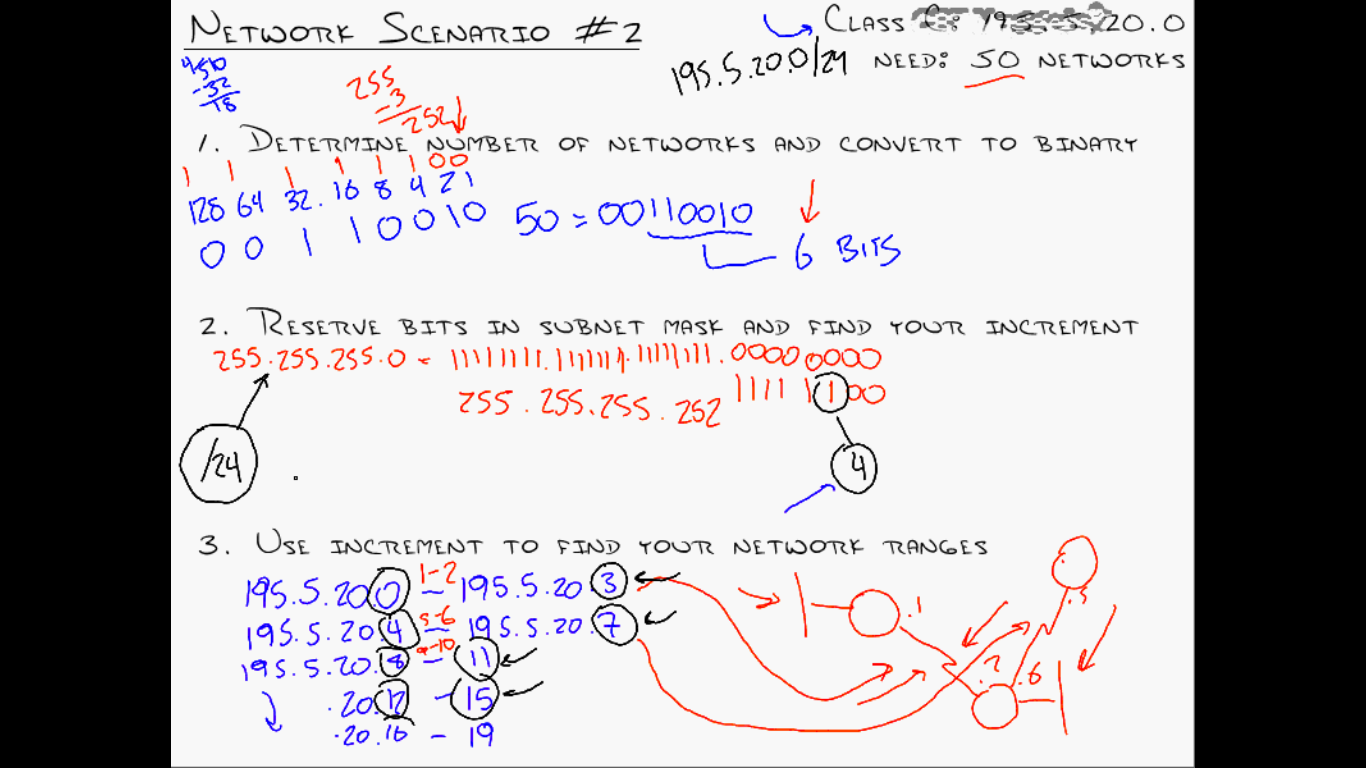 NETWORK SCENARIO #2
CLASS C: 195.5.20.0
195.5.20.0/24 NEED: 50 NETWORKS
50
-32
18
255
-3
252
1. DETERMINE NUMBER OF NETWORKS AND CONVERT TO BINARY
1 1 1 1 1 1 0 0
128 64 32 16 8 4 2 1
0 0 1 1 0 0 1 0 50 = 00110010
6 BITS
2. RESERVE BITS IN SUBNET MASK AND FIND YOUR INCREMENT
255.255.255.0 = 11111111.11111111.11111111.00000000
255.255.255.252 11111100
/24
4
3. USE INCREMENT TO FIND YOUR NETWORK RANGES
195.5.20.0 1-2 - 195.5.20.3
195.5.20.4 5-6 - 195.5.20.7
195.5.20.8 9-10 - 11
.20.12 - 15
.20.16 - 19
.1
.5
.2
.6